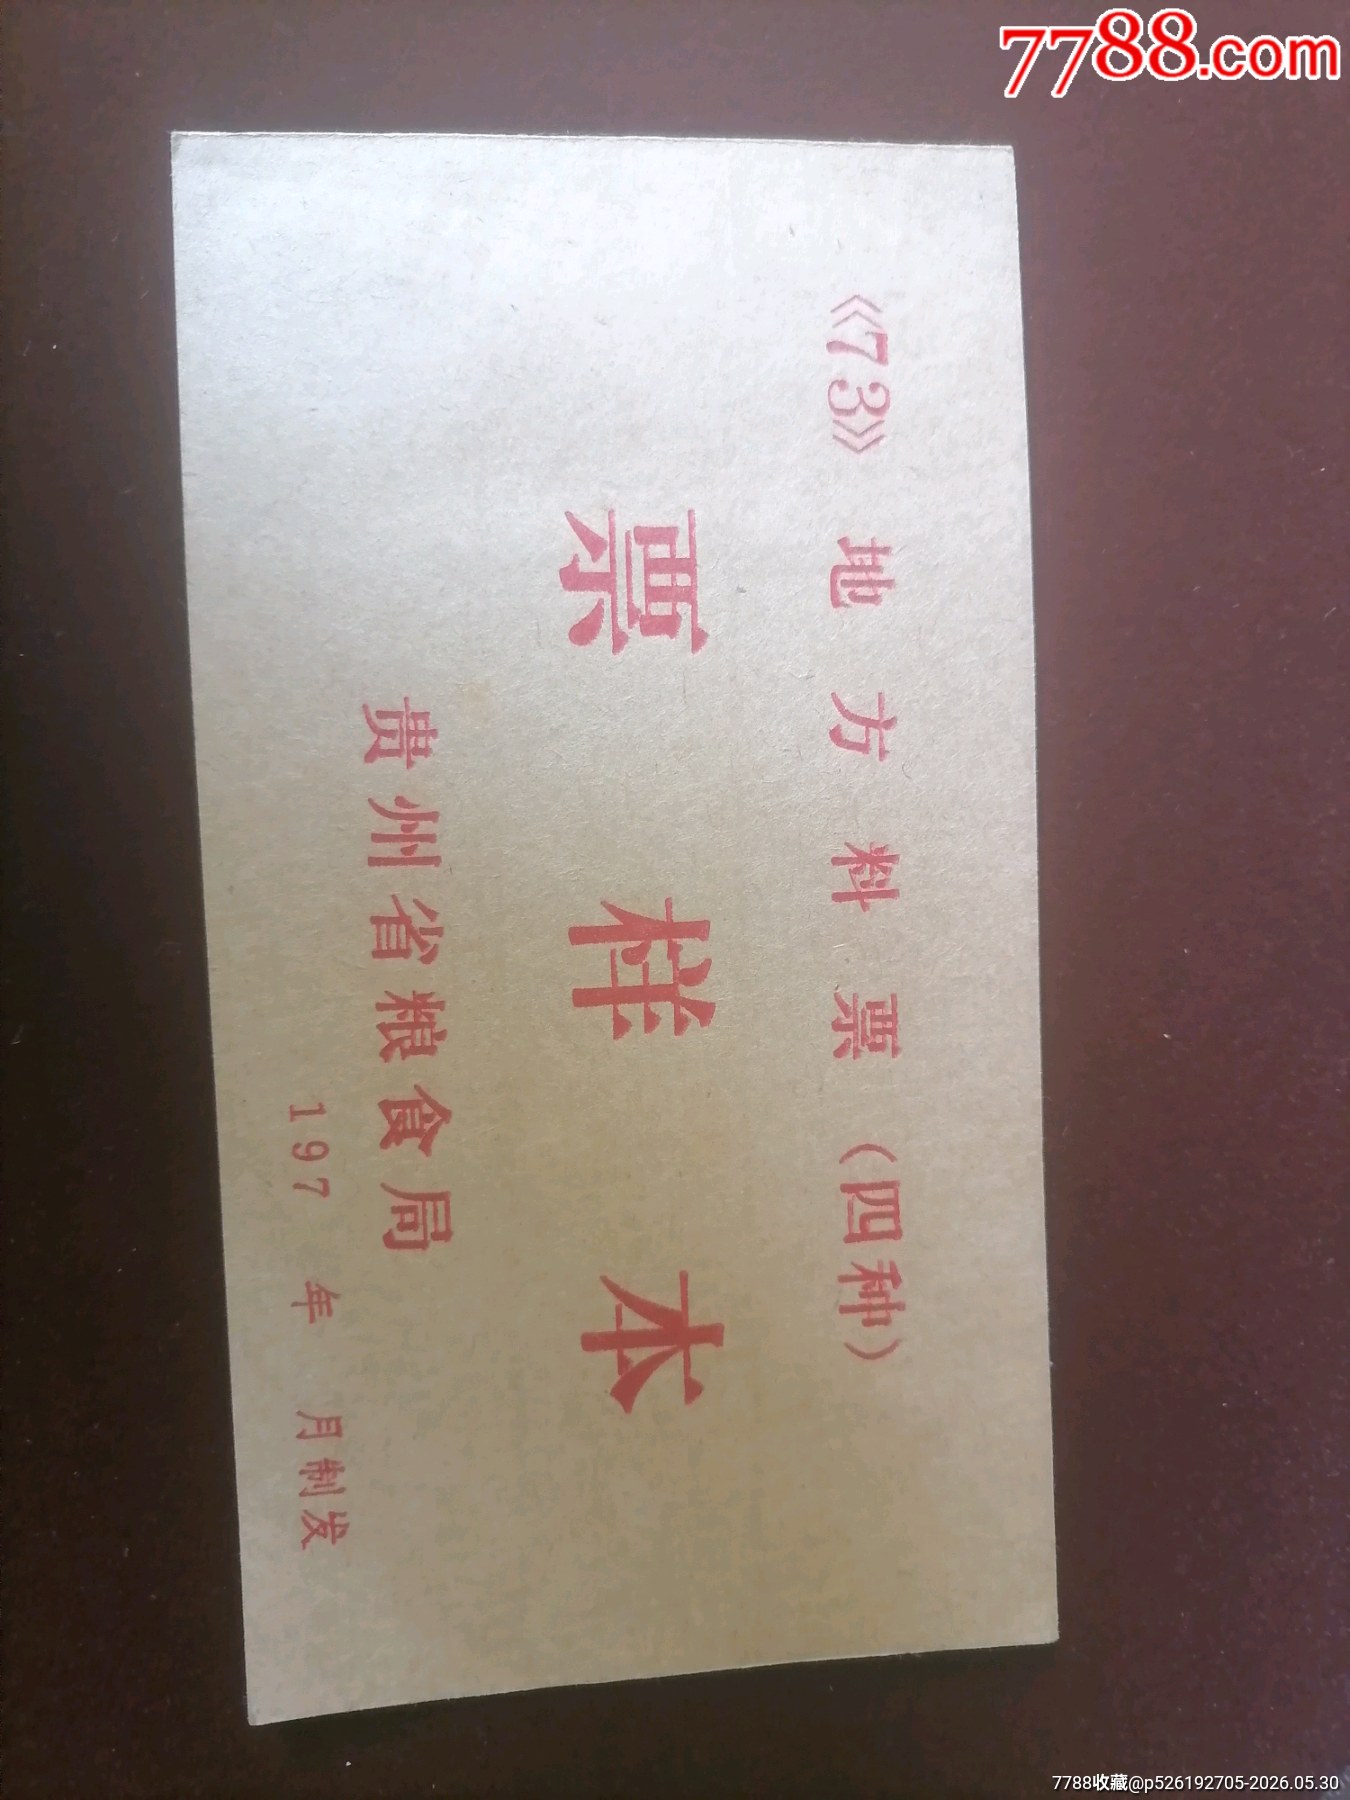 7788.com
《73》地方料票（四种）
票样本
贵州省粮食局
197 年 月制发
7788收藏@p526192705-2026.05.30